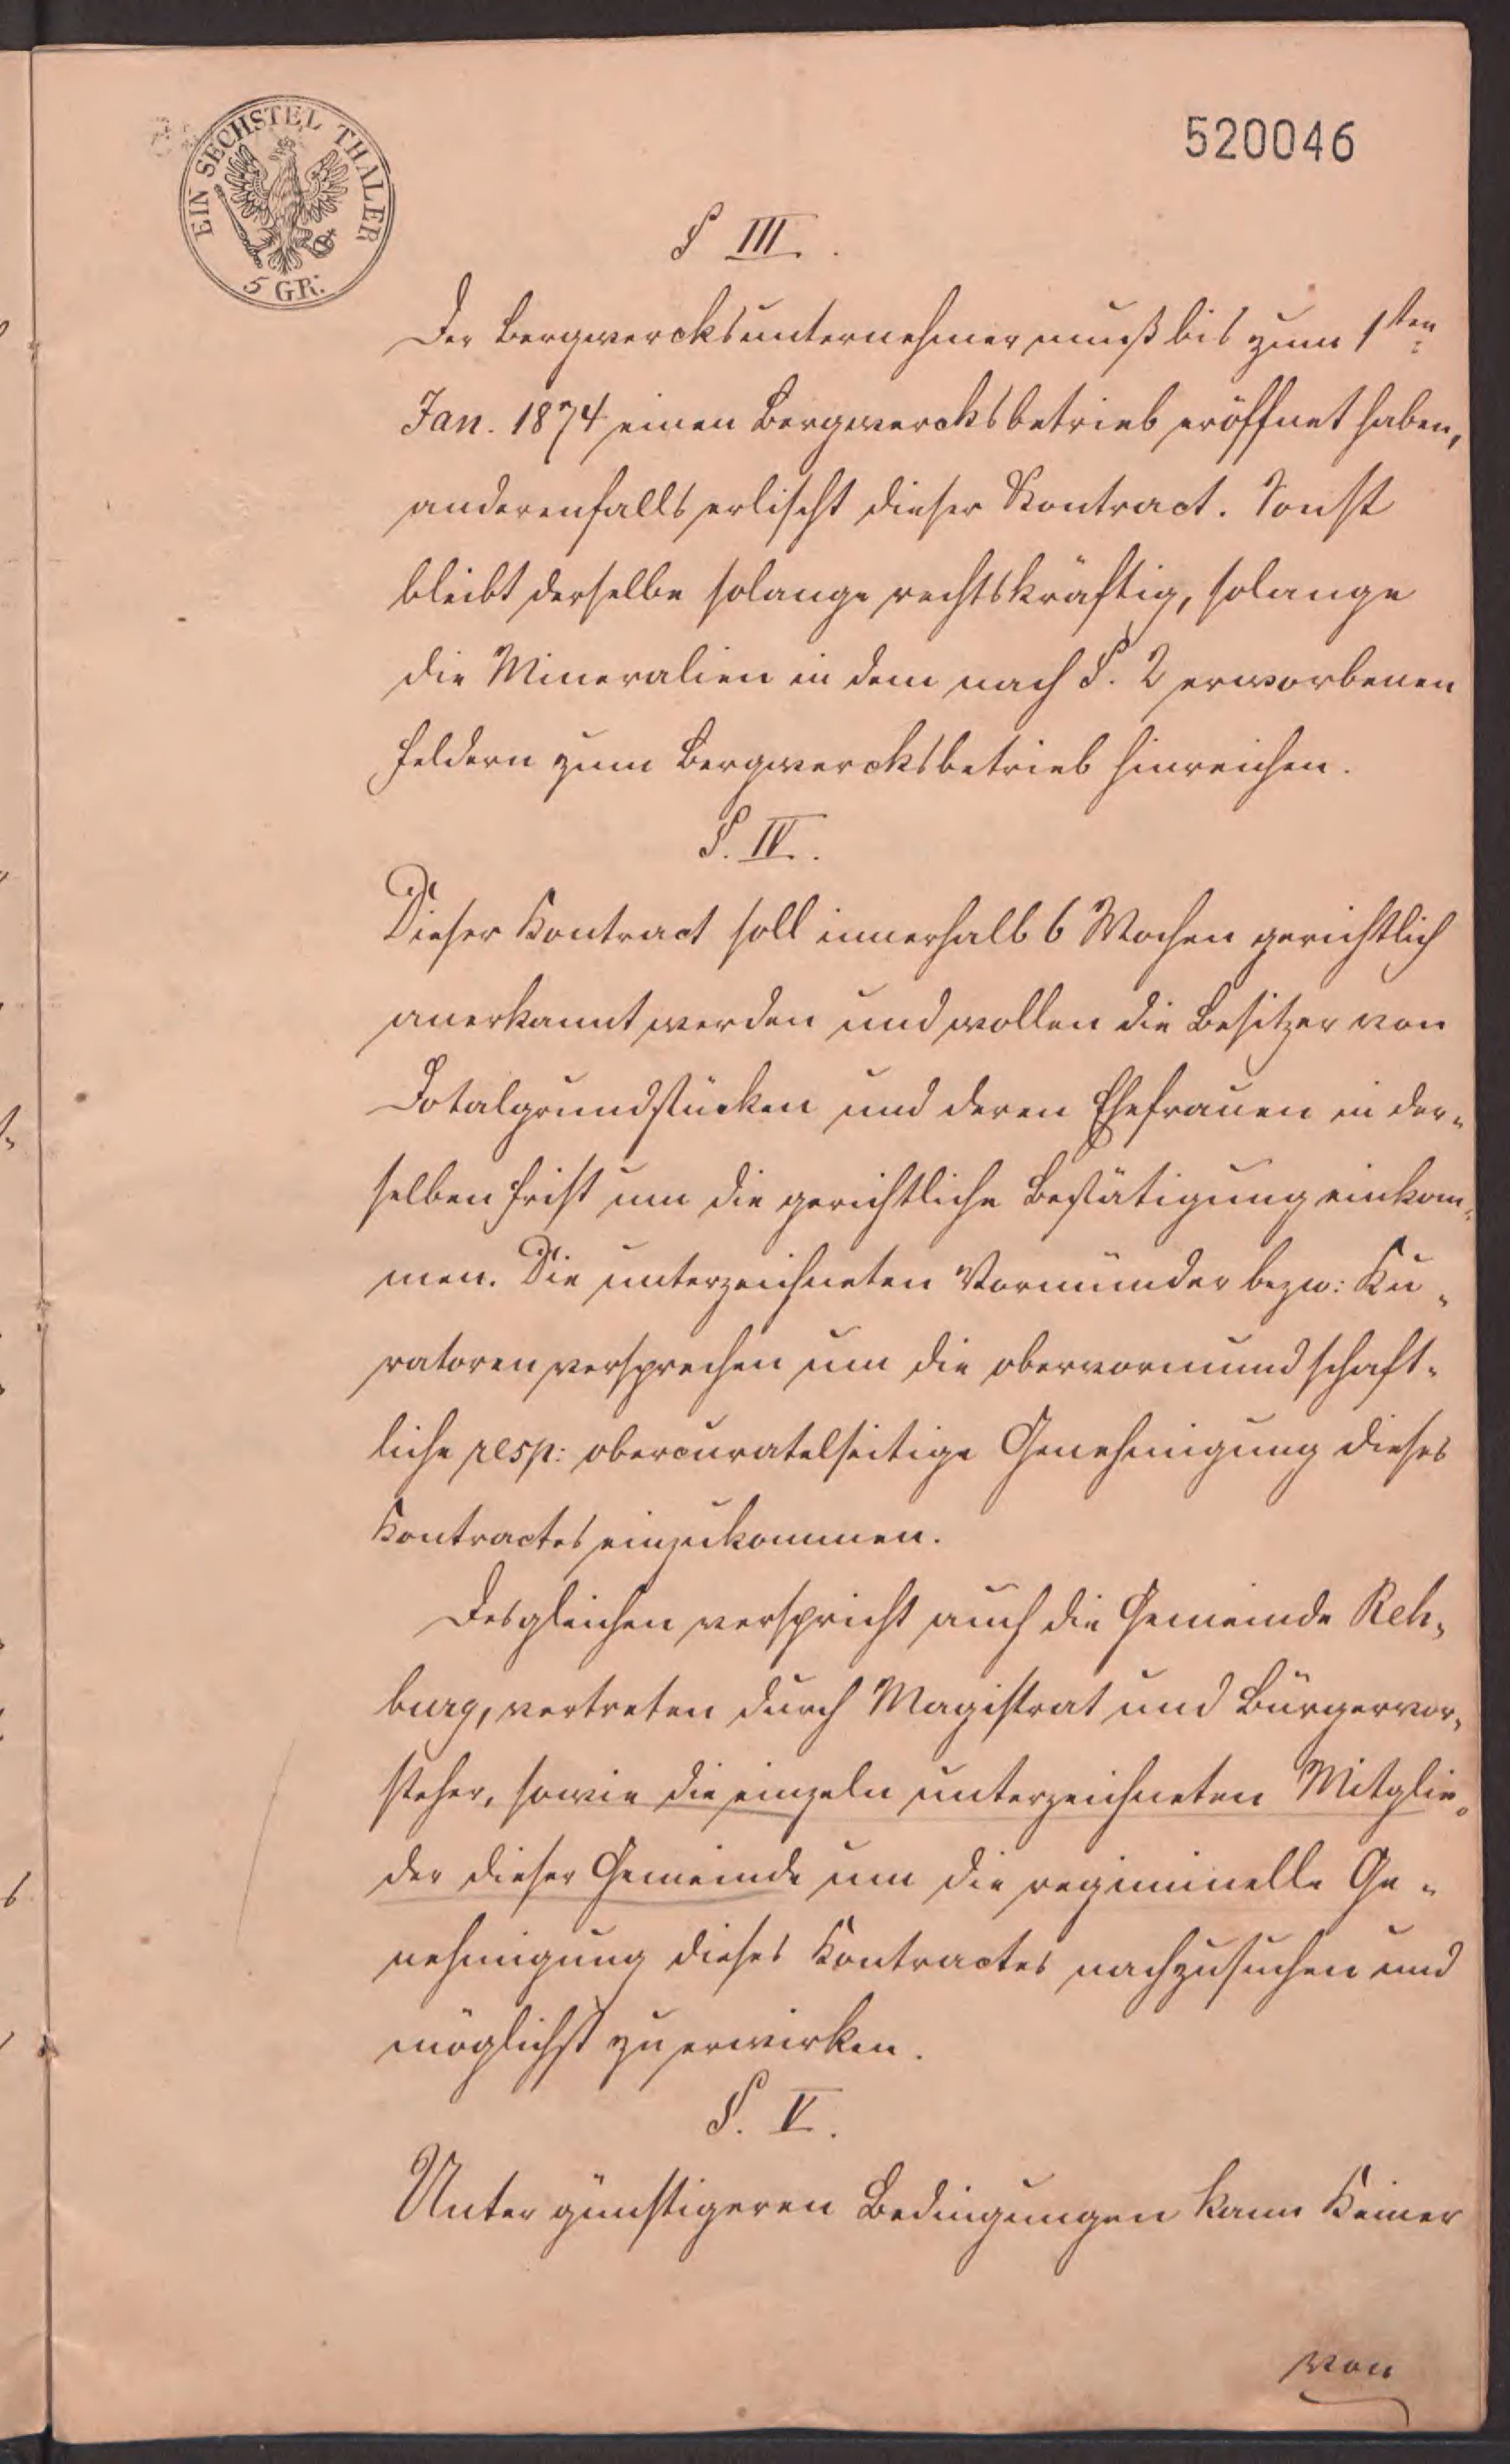 EIN SECHSTEL THALER
5 GR:
520046
§ III.
Der Bergwercksunternehmer muß bis zum 1sten
Jan. 1874 einen Bergwercksbetrieb eröffnet haben,
anderenfalls erlischt dieser Kontract. Sonst
bleibt derselbe solange rechtskräftig, solange
die Mineralien in dem nach §. 2 erworbenen
Feldern zum Bergwercksbetrieb hinreichen.
§. IV.
Dieser Kontract soll innerhalb 6 Wochen gerichtlich
anerkannt werden und wollen die Besitzer von
Dotalgrundstücken und deren Ehefrauen in der„
selben Frist um die gerichtliche Bestätigung einkom„
men. Die unterzeichneten Vormünder bezw: Ku„
ratoren versprechen um die obervormundschaft„
liche resp: obercuratelseitige Genehmigung dieses
Kontractes einzukommen.
Desgleichen verspricht auch die Gemeinde Reh„
burg, vertreten durch Magistrat und Bürgervor„
steher, sowie die einzeln unterzeichneten Mitglie„
der dieser Gemeinde um die regiminelle Ge„
nehmigung dieses Kontractes nachzusuchen und
möglichst zu erwirken.
§. V.
Unter günstigeren Bedingungen kann Keiner
von